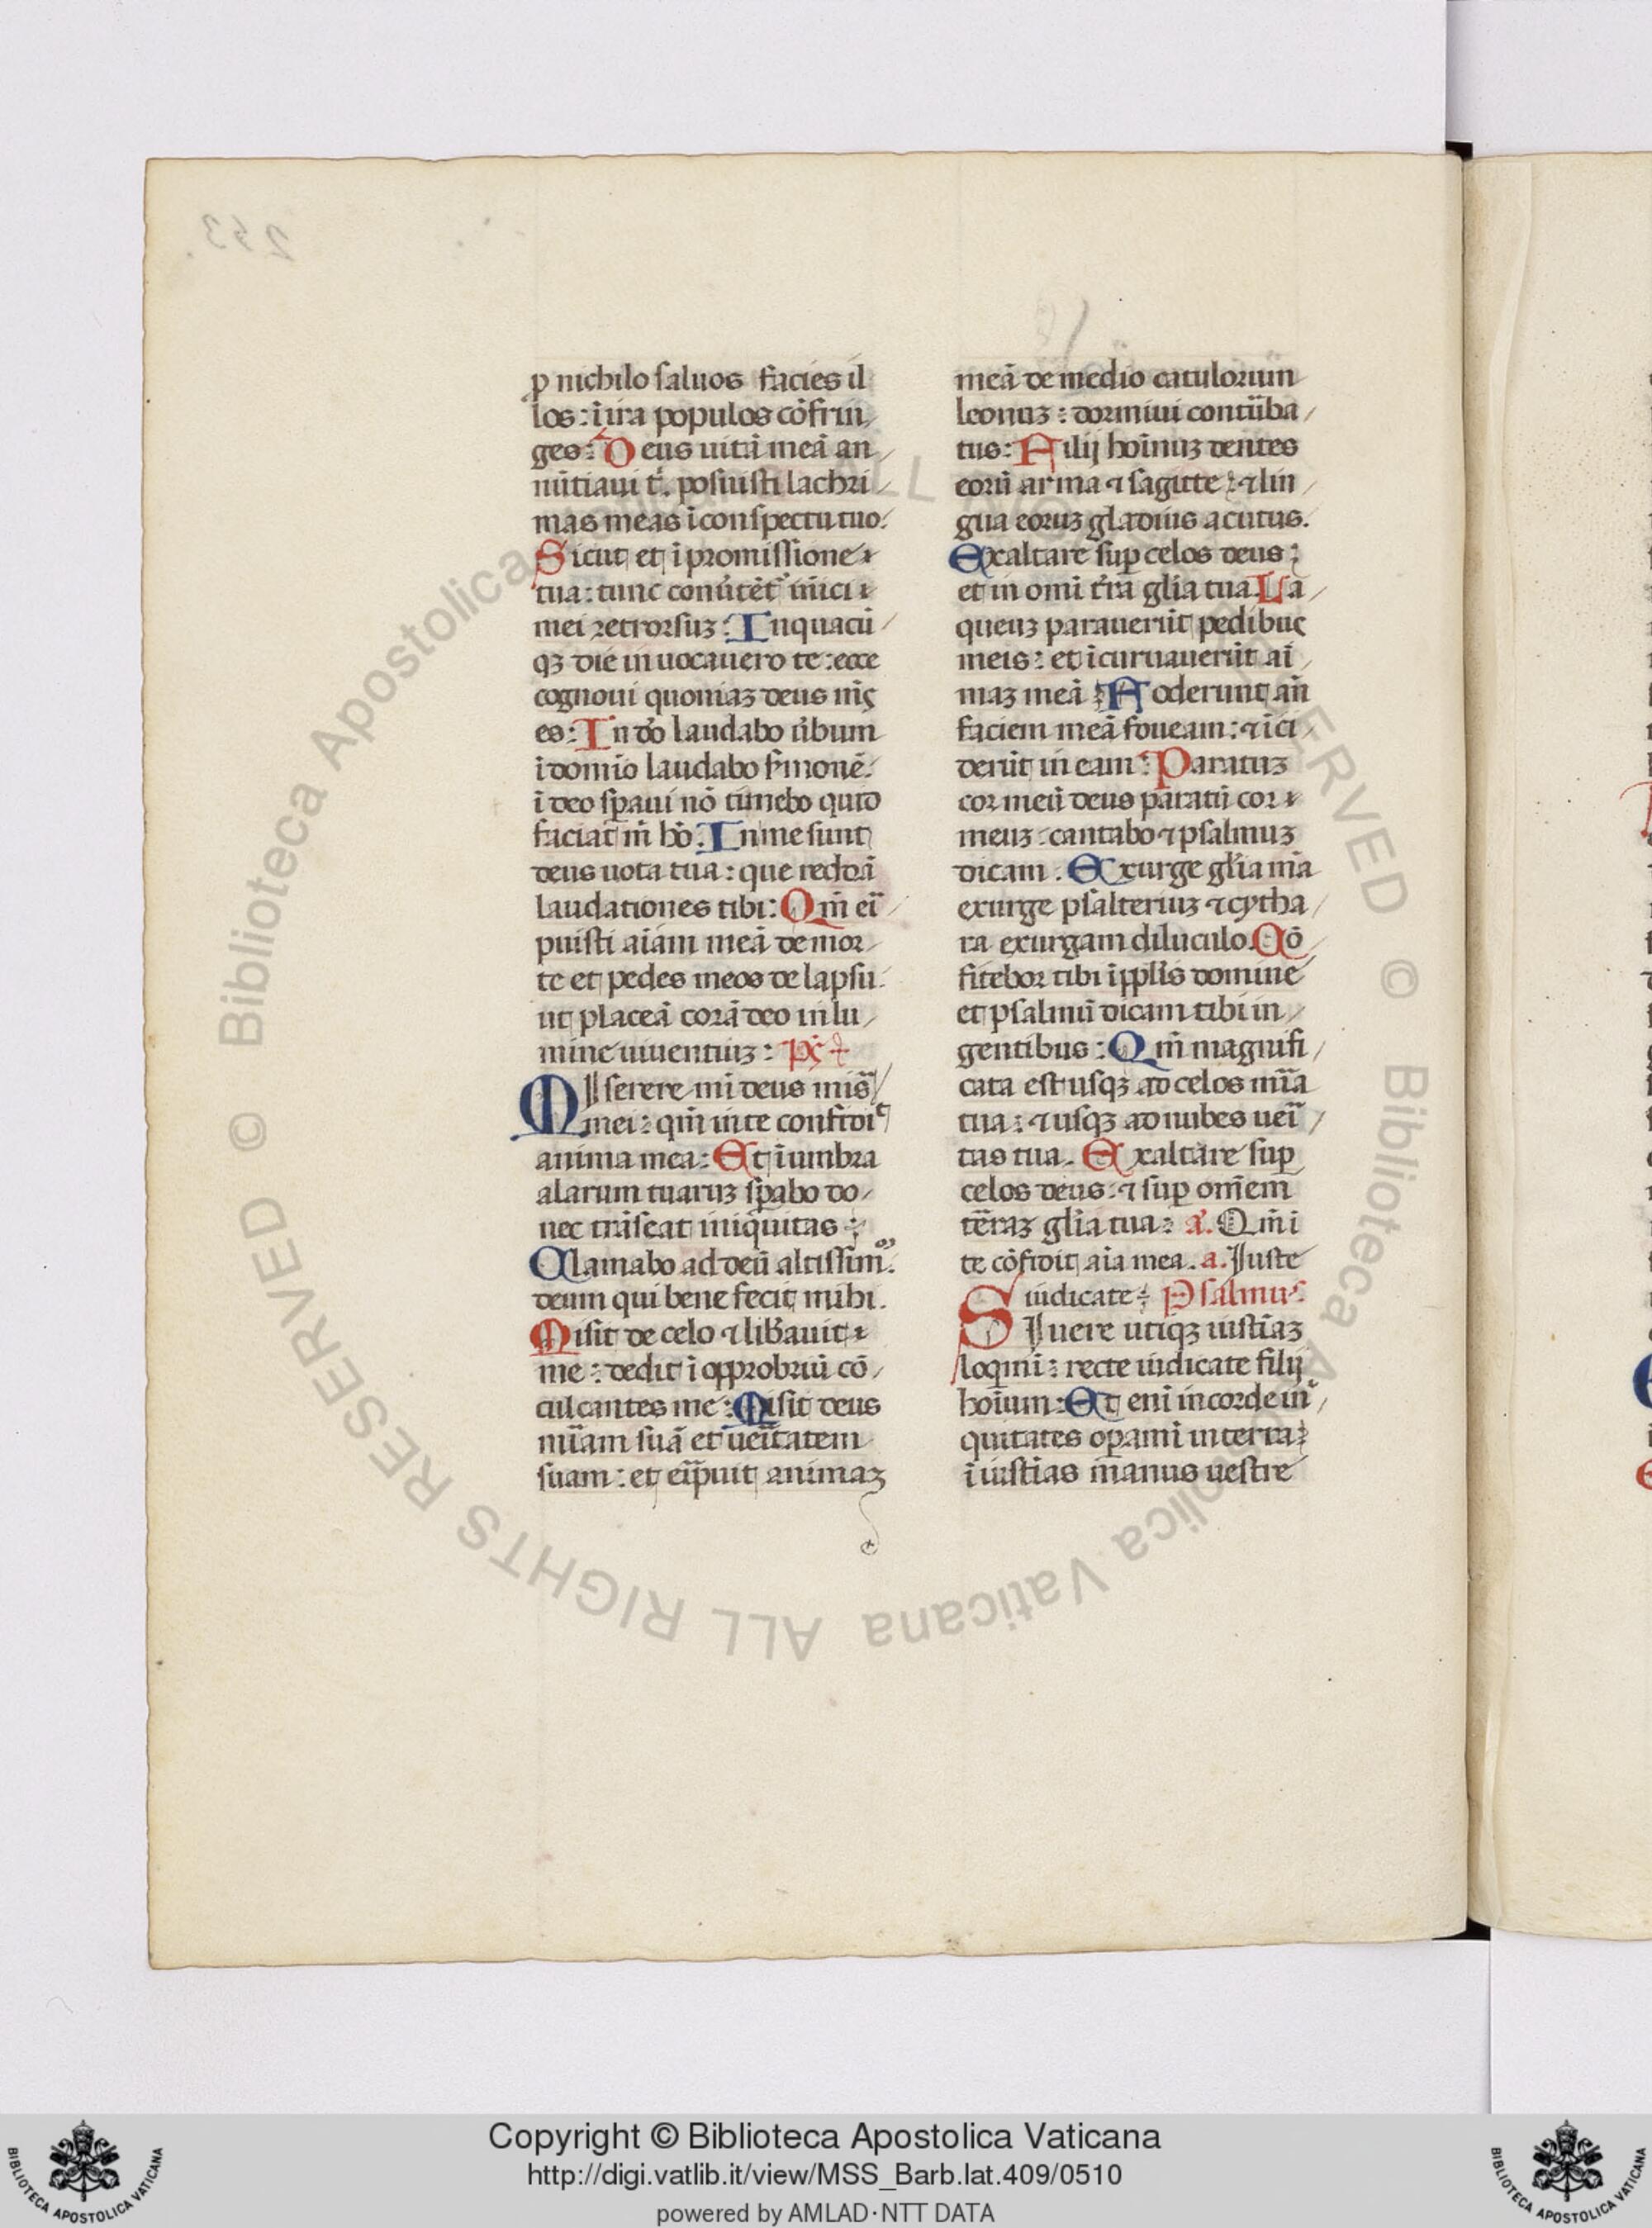 ꝓ nichilo saluos facies il
los: ī ira populos cōfrin
ges: Deus uitā meā an
nūtiaui t̄. posuisti lachri
mas meas ī conspectu tuo.
Sicut et ī promissione
tua: tunc conũtēt᷒ īnici
mei retrorsuꝫ: In quacū
qꝫ die inuocauero te: ecce
cognoui quoniaꝫ deus m̄s
es: In dō laudabo ũbum
ī domīo laudabo s̄monē:
ī deo sꝑaui nō timebo quid
faciat m̄ hō. In me sunt
deus uota tua: que reddā
laudationes tibi: Qm̄ ei
puisti aīam meā de mor
te et pedes meos de lapsu:
ut placeā corā deo in lu
mine uiuentiuꝫ: pṡ
Miserere mī deus mis̄
mei: qm̄ in te confidit
anima mea: Et ī umbra
alarum tuaruꝫ sꝑabo do
nec trāseat iniquitas:
Clamabo ad deū altissimū.
deum qui bene fecit mihi.
Misit de celo ⁊ lib̄auit
me: dedit ī opprobriū cō
culcantes me: Misit deus
mīam suā et ueītatem
suam: et eīpuit animaꝫ
meā de medio catulorum
leonuꝫ: dormiui contūba
tus: Filij hoīnuꝫ dentes
eorū arma ⁊ sagitte: ⁊ lin
gua eoruꝫ gladius acutus.
Exaltare suꝑ celos deus:
et in omī t̄ra glīa tua. La
queuꝫ parauerūt pedibus
meis: et īcuruauerūt aī
maꝫ meā: Foderunt an̄
faciem meā foueam: ⁊ īci
derūt in eam: Paratuꝫ
cor meū deus paratū cor
meuꝫ: cantabo ⁊ psalmuꝫ
dicam. Exurge glīa m̄a
exurge psalteriuꝫ ⁊ cytha
ra exurgam diluculo. Cō
fitebor tibi ī ppl̄is domine
et psalmū dicam tibi in
gentibus: Qm̄ magnifi
cata est usqꝫ ad celos mīa
tua: ⁊ usqꝫ ad nubes ueī
tas tua. Exaltare suꝑ
celos deus: ⁊ suꝑ om̄em
t̄eraꝫ glīa tua: a. Qm̄ ī
te cōfidit aīa mea. a. Juste
iudicate: Psalmus
Si uere utiqꝫ iustīaꝫ
loqmī: recte iudicate filij
hoīum: Et enī in corde in
quitates oꝑamī in terra:
ī iustīas manus uestre
Copyright © Biblioteca Apostolica Vaticana
http://digi.vatlib.it/view/MSS_Barb.lat.409/0510
powered by AMLAD·NTT DATA